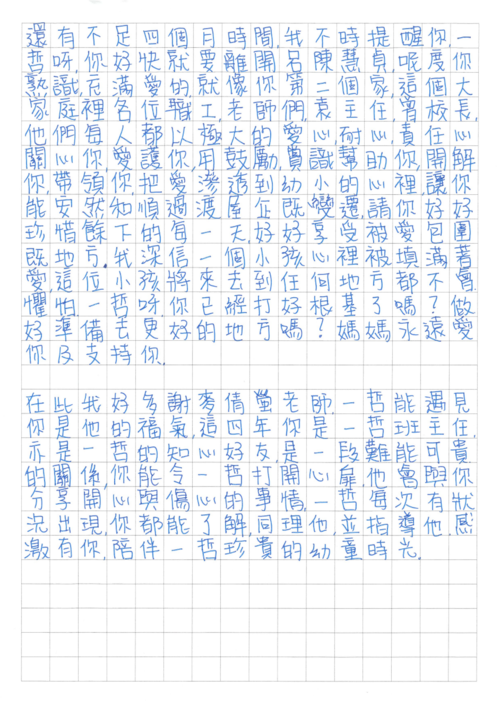 還有不足四個月時間,我不時提醒你,一
哲呀,你好快就要離開呂陳慧貞,呢度你
熟識,充滿愛的就像你第二個家,這個大
家庭裡各位職工,老師們,袁主任,曾校長,
他們每人都以極大的愛心,耐心,責任心
關心你,愛護你,用鼓勵,賞識幫助你,開解
你,帶領你,把愛滲透到幼小的心裡,讓你
能安然和順過渡屋企既變遷,請你好好
珍惜餘下的每一天,好好享受被愛包圍
既地方,我深信一個小孩心裡被填滿著
愛,這位小孩將來去到任何地方都不會
懼怕,一哲呀,你已經打好根基了嗎?做
好準備去更好的地方嗎?媽媽永遠愛
你及支持你.
在此我好多謝麥倩螢老師,一哲能遇見
你是他的福氣,這四年你是一哲班主任,
亦是一哲的知心好友,是一段難能可貴
的關係,你能令一哲打開心扉,他會與你
分享開心與傷心的事情,一哲每次有狀
況出現,你都能了解,同理他,並指導他,感
激有你,陪伴一哲珍貴的幼童時光.